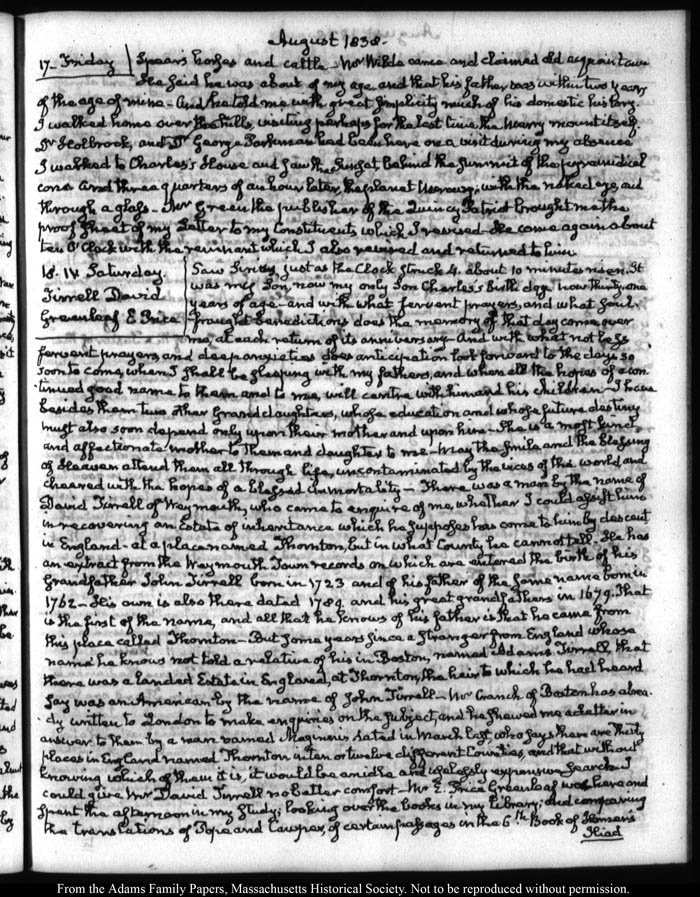 August 1838.
17. Friday
Spear's horses and cattle. Mr Wilde came and claimed old acquaintance
He said he was about of my age and that his father was within two years
of the age of mine. And he told me with great simplicity much of his domestic history.
I walked home over the hills, visiting perhaps for the last time the Merry mount itself
Dr Holbrook, and Dr George Parkman had been here on a visit during my absence
I walked to Charles's House and saw the Sunset behind the summit of the pyramidical
cone and three quarters of an hour later, the planet Mercury, with the naked eye, and
through a glass. Mr Green the publisher of the Quincy Patriot brought me the
proof sheet of my Letter to my Constituents which I revised. He came again about
ten O'Clock with the remnant which I also revised and returned to him.
18. IV. Saturday.
Tirrell David
Greenleaf E Price
Saw Sunday just as the Clock struck 4. about 10 minutes risen. It
was my Son, now my only Son Charles's Birth day. now thirty one
years of age and with what fervent prayers, and what soul
fraught benedictions does the memory of that day come over
me, at each return of its anniversary. And with what not less
fervent prayers and deep anxieties does anticipation look forward to the days so
soon to come, when I shall be sleeping with my fathers, and when all the hopes of a con-
tinued good name to them and to me, will centre with him and his children. I have
besides them two other Grand daughters, whose education and whose future destiny
must also soon depend only upon their mother and upon him. She is a most kind
and affectionate mother to them and daughter to me. May the smile and the blessing
of Heaven attend them all through life, uncontaminated by the vices of this world and
cheared with the hopes of a blessed immortality. There was a man by the name of
David Tirrell of Weymouth, who came to enquire of me, whether I could assist him
in recovering an Estate of inheritance which he supposes has come to him by descent
in England. at a place named Thornton, but in what County he cannot tell. He has
an extract from the Weymouth Town records on which are entered the birth of his
Grandfather John Tirrell born in 1723 and of his father of the same name born in
1762. His own is also there dated 1789 and his great grandfathers in 1679. That
is the first of the name, and all that he knows of his father is that he came from
this place called Thornton. But some years since a stranger from England whose
name he knows not told a relative of his in Boston, named Adams Tirrell, that
there was a landed Estate in England, at Thornton, the heir to which he had heard
say was an American by the name of John Tirrell. Mr Cranch of Boston has alrea-
dy written to London to make enquiries on the subject, and he shewed me a Letter in
answer to them by a man named dated in March last, who says there are thirty
places in England named Thornton in ten or twelve different Counties, and that without
knowing which of them it is, it would be an idle and uselessly expensive search. I
could give Mr David Tirrell no better comfort. Mr E. Price Greenleaf was here and
spent the afternoon in my Study; looking over the books in my Library; and comparing
the translations of Pope and Cowper, of certain passages in the 6th Book of Homer's
Iliad
From the Adams Family Papers, Massachusetts Historical Society. Not to be reproduced without permission.